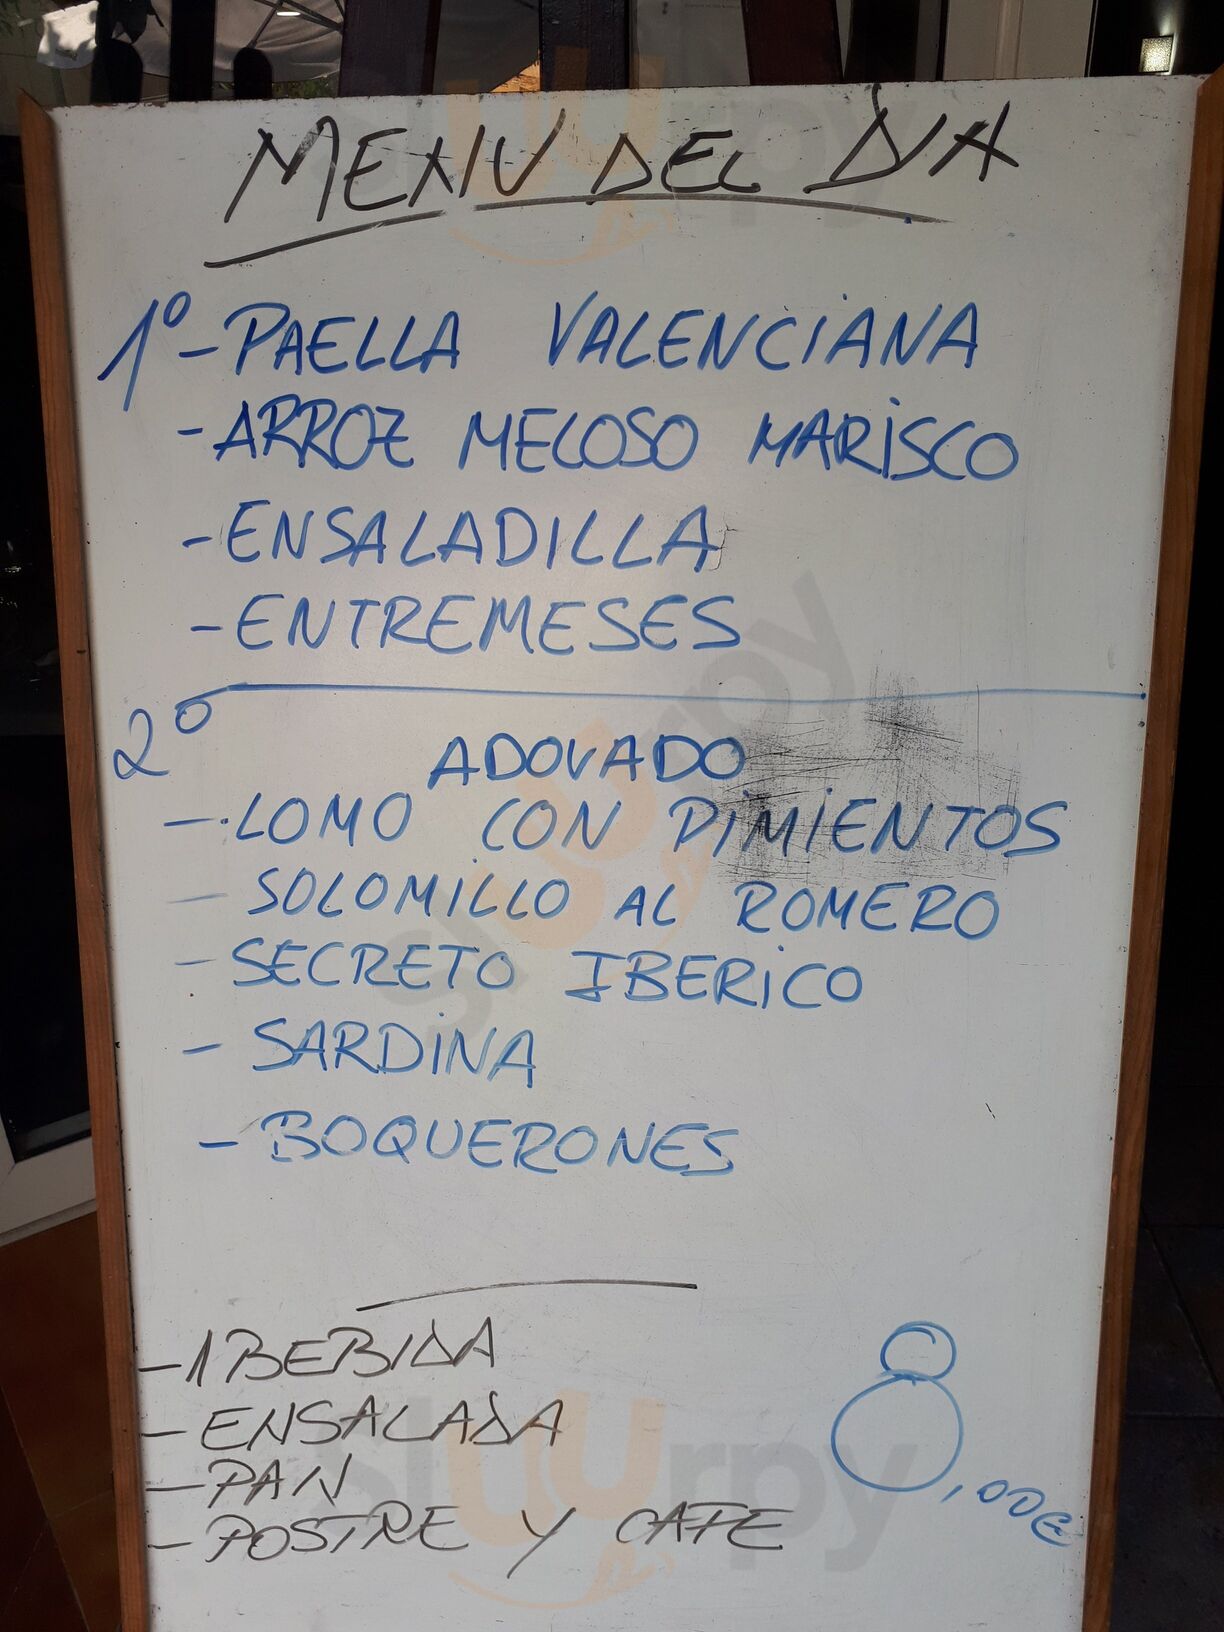 MENU DEL DIA
1º - PAELLA VALENCIANA
- ARROZ MELOSO MARISCO
- ENSALADILLA
- ENTREMESES
2º
ADOVADO
- LOMO CON PIMIENTOS
- SOLOMILLO AL ROMERO
- SECRETO IBERICO
- SARDINA
- BOQUERONES
- 1 BEBIDA
- ENSALADA
- PAN
- POSTRE Y CAFE
8,00€
sluurpy
sluurpy
sluurpy